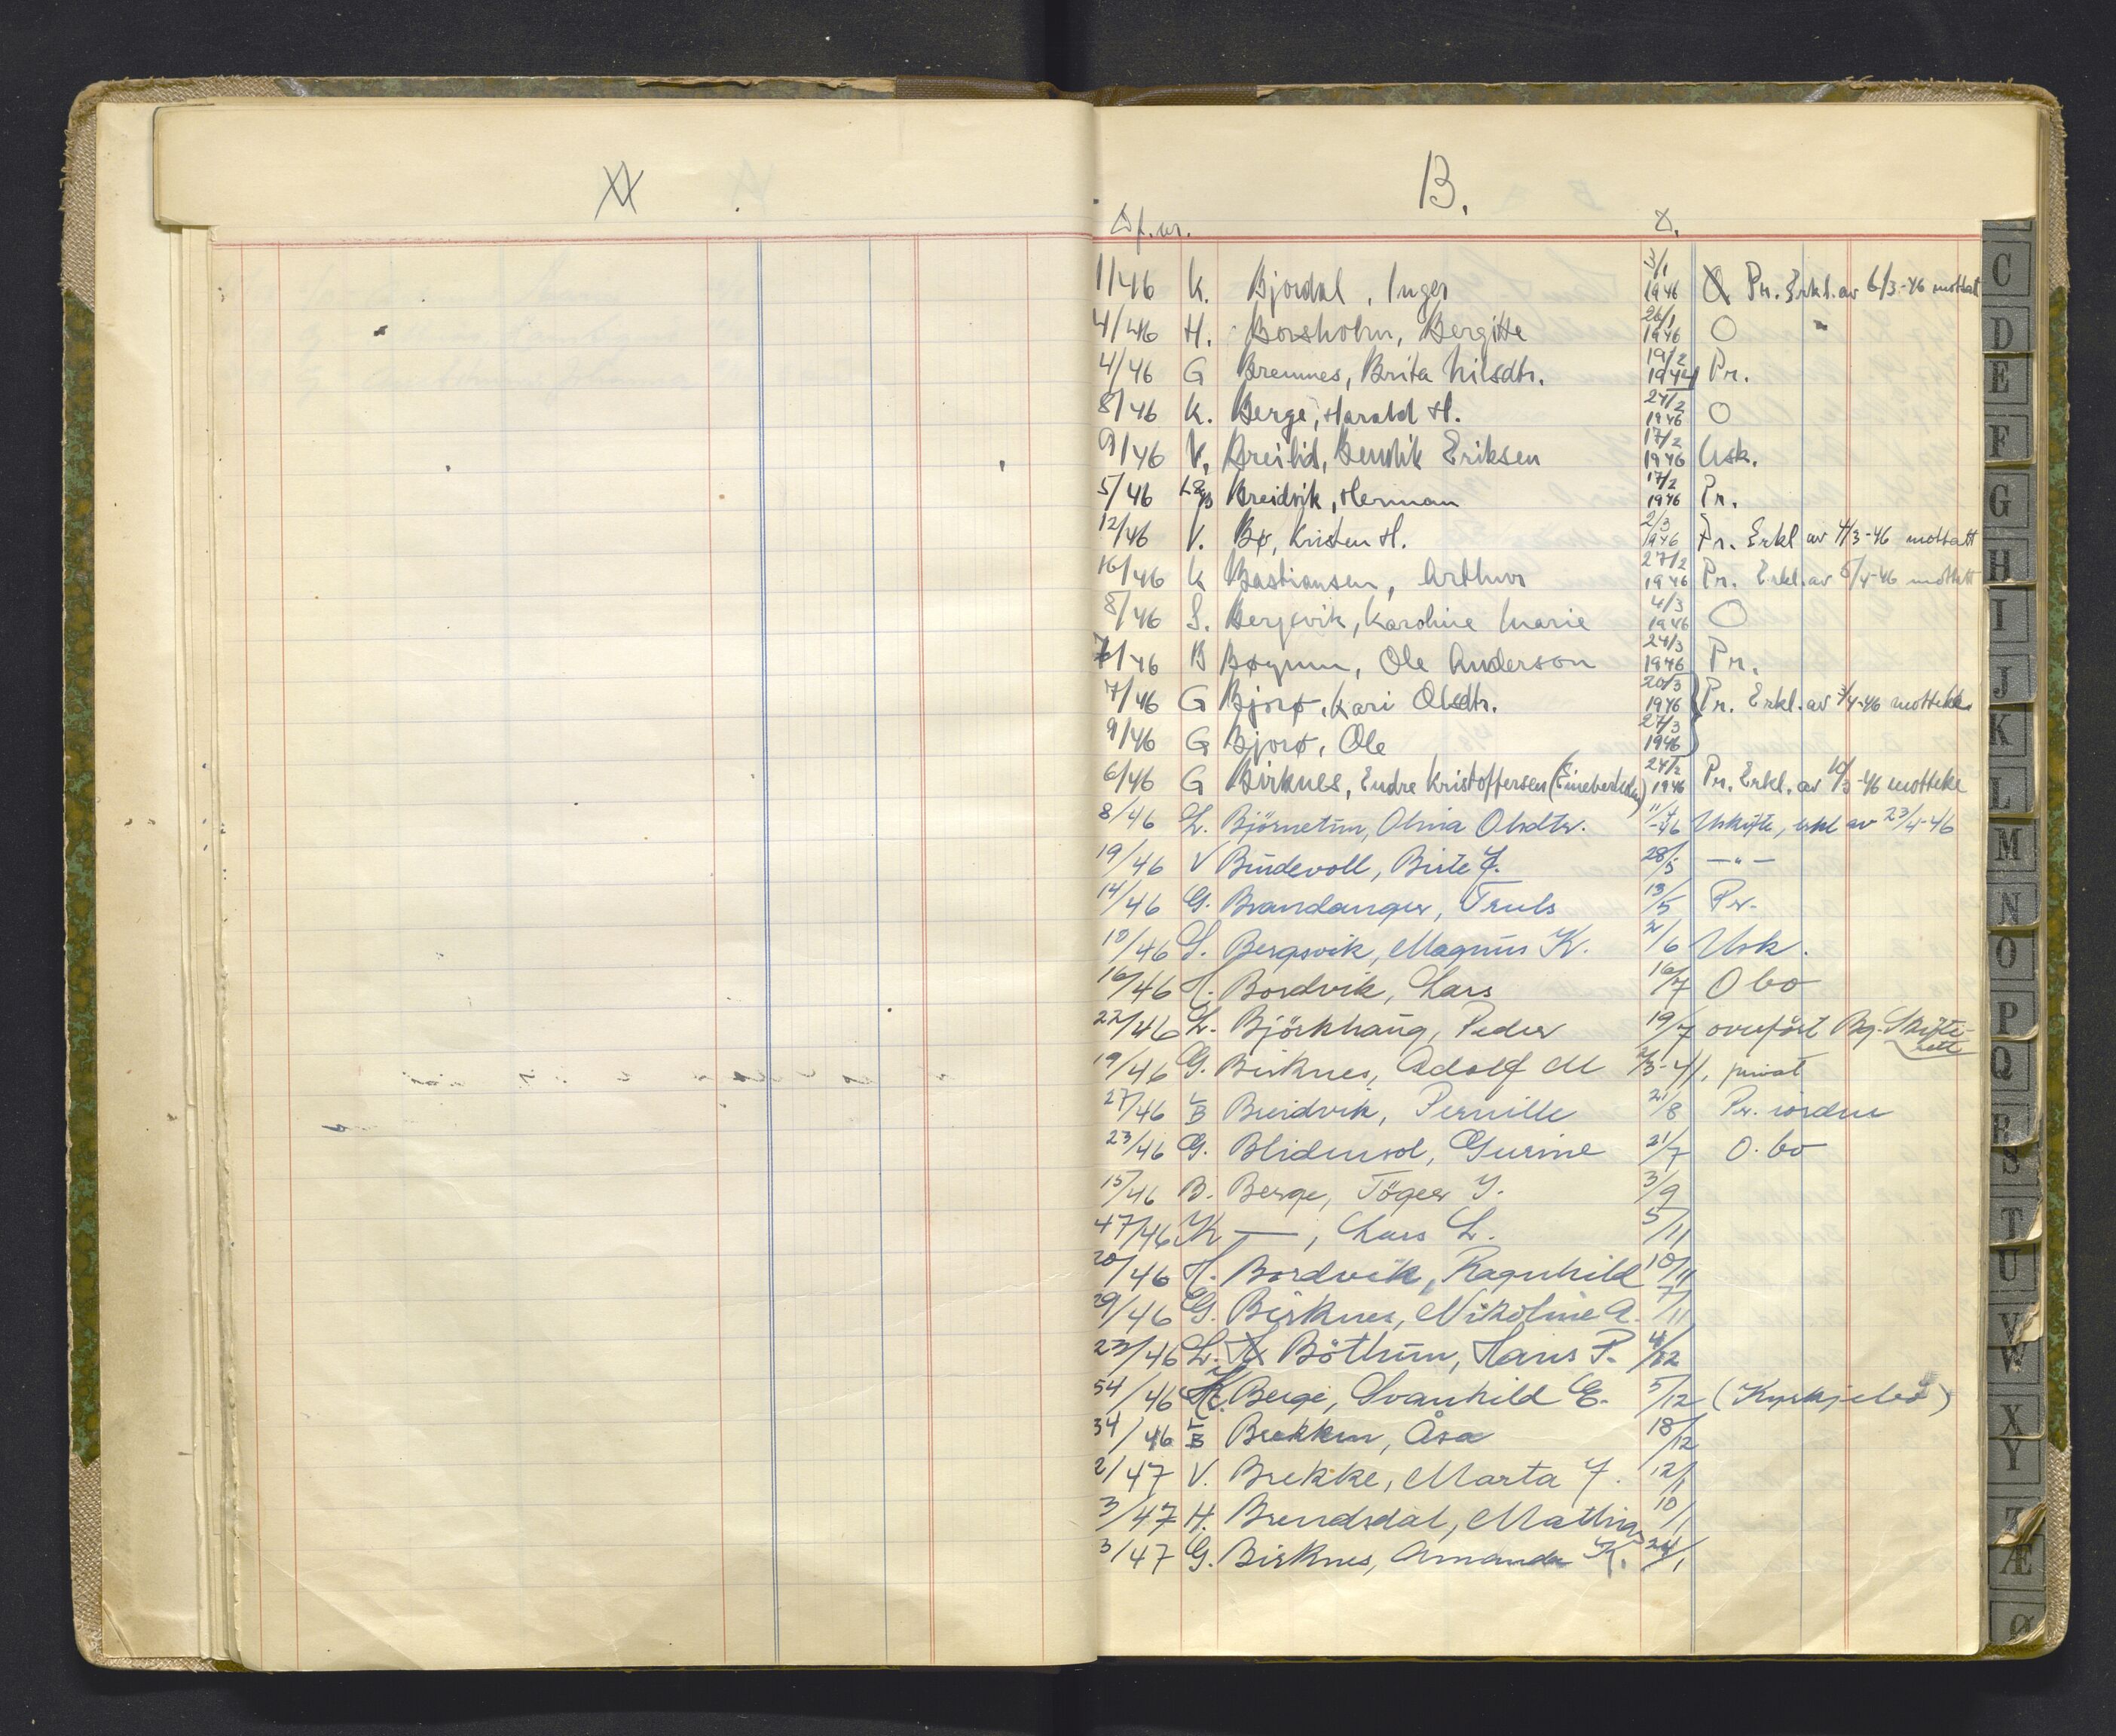 B.
Df. nr. D.
1/46 K. Bjordal, Inger 3/1 1946 Pr. Erkl. av 6/3-46 mottatt
4/46 H. Borsholm, Bergitte 26/1 1946 O
4/46 G Bremnes, Brita Nilsdtr. 19/2 1944 Pr.
8/46 K. Berge, Harald H. 24/2 1946 O
9/46 V. Breilid, Bendik Eriksen 17/2 1946 Usk.
5/46 Breidvik, Herman 17/2 1946 Pr.
12/46 V. Bø, Kristen H. 2/3 1946 Pr. Erkl av 4/3-46 mottatt
16/46 K Bastiansen, Arthur 27/2 1946 Pr. Erkl. av 5/4-46 mottatt
8/46 S. Bergsvik, Karoline Marie 4/3 1946 O
7/46 B Bøyum, Ole Anderson 24/3 1946 Pr.
7/46 G Bjorø, Kari Olsdtr. 20/3 1946 Pr. Erkl. av 3/4-46 mottekne
9/46 G Bjorø, Ole 27/3 1946
6/46 G Birknes, Endre Kristoffersen 24/2 1946 Pr. Erkl. av -46 motteke
8/46 L. Björnetun, Olina Olsdtr. 11/4 -46 Uskifte, erkl av 23/4-46
19/46 V Bindevoll, Brite J. 28/5 — " —
14/46 G. Brandanger, Truls 13/5 Pr.
18/46 S. Bergsvik, Magnus K. 2/6 Usk.
16/46 H. Bordvik, Lars 16/7 O bo
22/46 L. Björkhaug, Peder 19/7 overfört Bg. Skifte-
rett
19/46 G. Birknes, Adolf M 2/3-41, privat
27/46 L B Breidvik, Pernille 21/8 Pr. iorden
23/46 G. Blidensol, Gurine 21/7 O. bo
15/46 B. Berge, Töger J. 3/9
47/46 K — , Lars L. 5/11
20/46 H. Bordvik, Ragnhild 10/11
29/46 G. Birknes, Nikoline A. 7/11
23/46 L. Böthun, Hans P. 4/12
54/46 K. Berge, Svanhild E. 5/12 (Kyrkjebö)
34/46 L B Brekken, Åsa 18/12
2/47 V. Brekke, Marta J. 12/1
3/47 H. Brendsdal, Mathias 10/1
3/47 G. Birknes, Amanda K. 24/1
C
D
E
F
G
H
I
J
K
L
M
N
O
P
Q
R
S
T
U
V
W
X
Y
Z
Æ
Ø